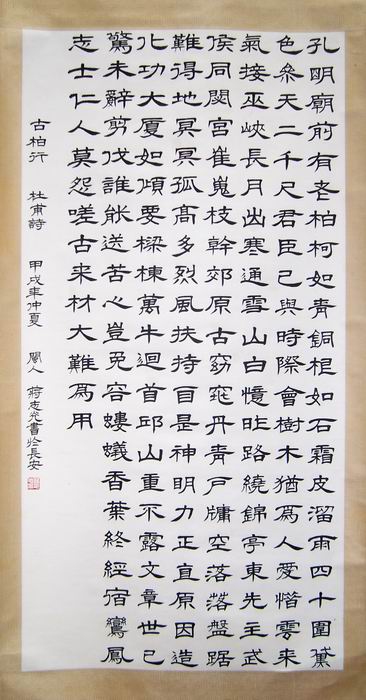 孔明廟前有老柏柯如青銅根如石霜皮溜雨四十圍黛
色參天二千尺君臣已與時際會樹木猶爲人愛惜雲來
氣接巫峽長月出寒通雪山白憶昨路繞錦亭東先主武
侯同閟宮崔嵬枝幹郊原古窈窕丹青戶牖空落落盤踞
難得地冥冥孤高多烈風扶持自是神明力正直原因造
化功大廈如傾要樑棟萬牛迴首邱山重不露文章世已
驚未辭剪伐誰能送苦心豈免容螻蟻香葉終經宿鸞鳳
志士仁人莫怨嗟古來材大難爲用
古柏行 杜甫詩 甲戌年仲夏 閩人 蔣志書於長安